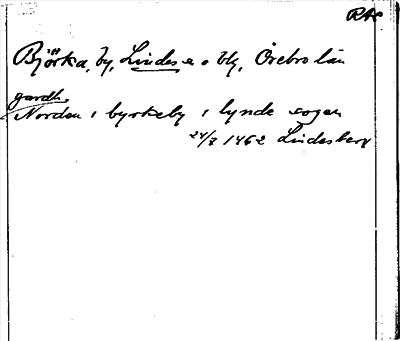 RAP
Björka, by, Lindes s. o bg, Örebro län
gardh
Norden i byrkeby i lynde sogen
24/7 1462 Lindesberg